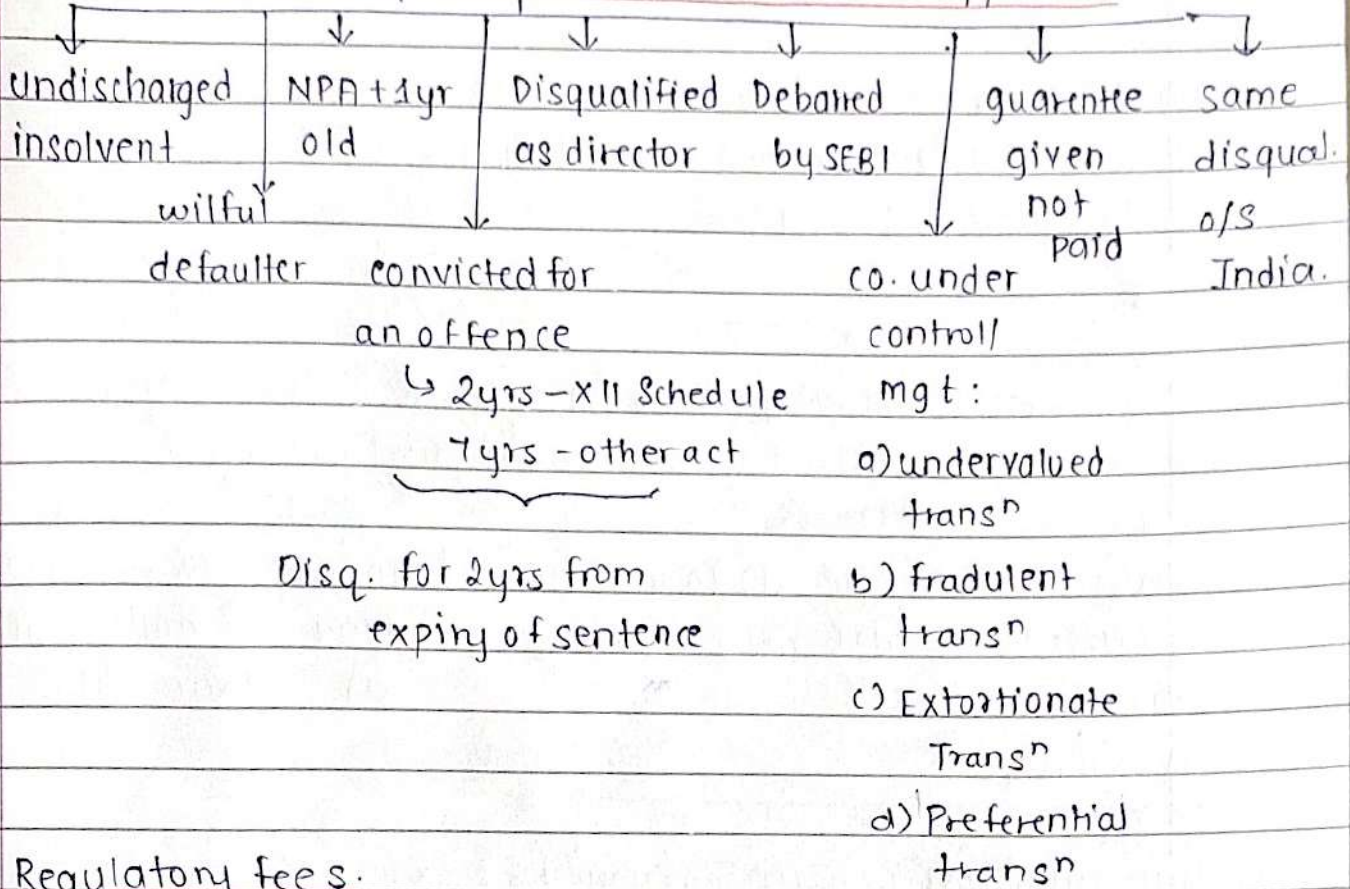 undischarged
insolvent
wilful
defaulter
NPA + 1yr
old
convicted for
an offence
↳ 2yrs - XII Schedule
7yrs - other act
Disq. for 2yrs from
expiry of sentence
Disqualified
as director
Debarred
by SEBI
co. under
control/
mgt :
a) undervalued
transⁿ
b) fradulent
transⁿ
c) Extortionate
Transⁿ
d) Preferential
transⁿ
guarentee
given
not
paid
same
disqual.
o/s
India.
Regulatory fees.